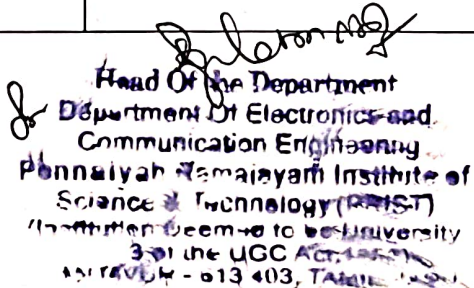 Head Of the Department
Department Of Electronics and
Communication Engineering
Ponnaiyah Ramajayam Institute of
Science & Technology (PRIST)
Institution Deemed to be University
3 of the UGC Act
613 403,